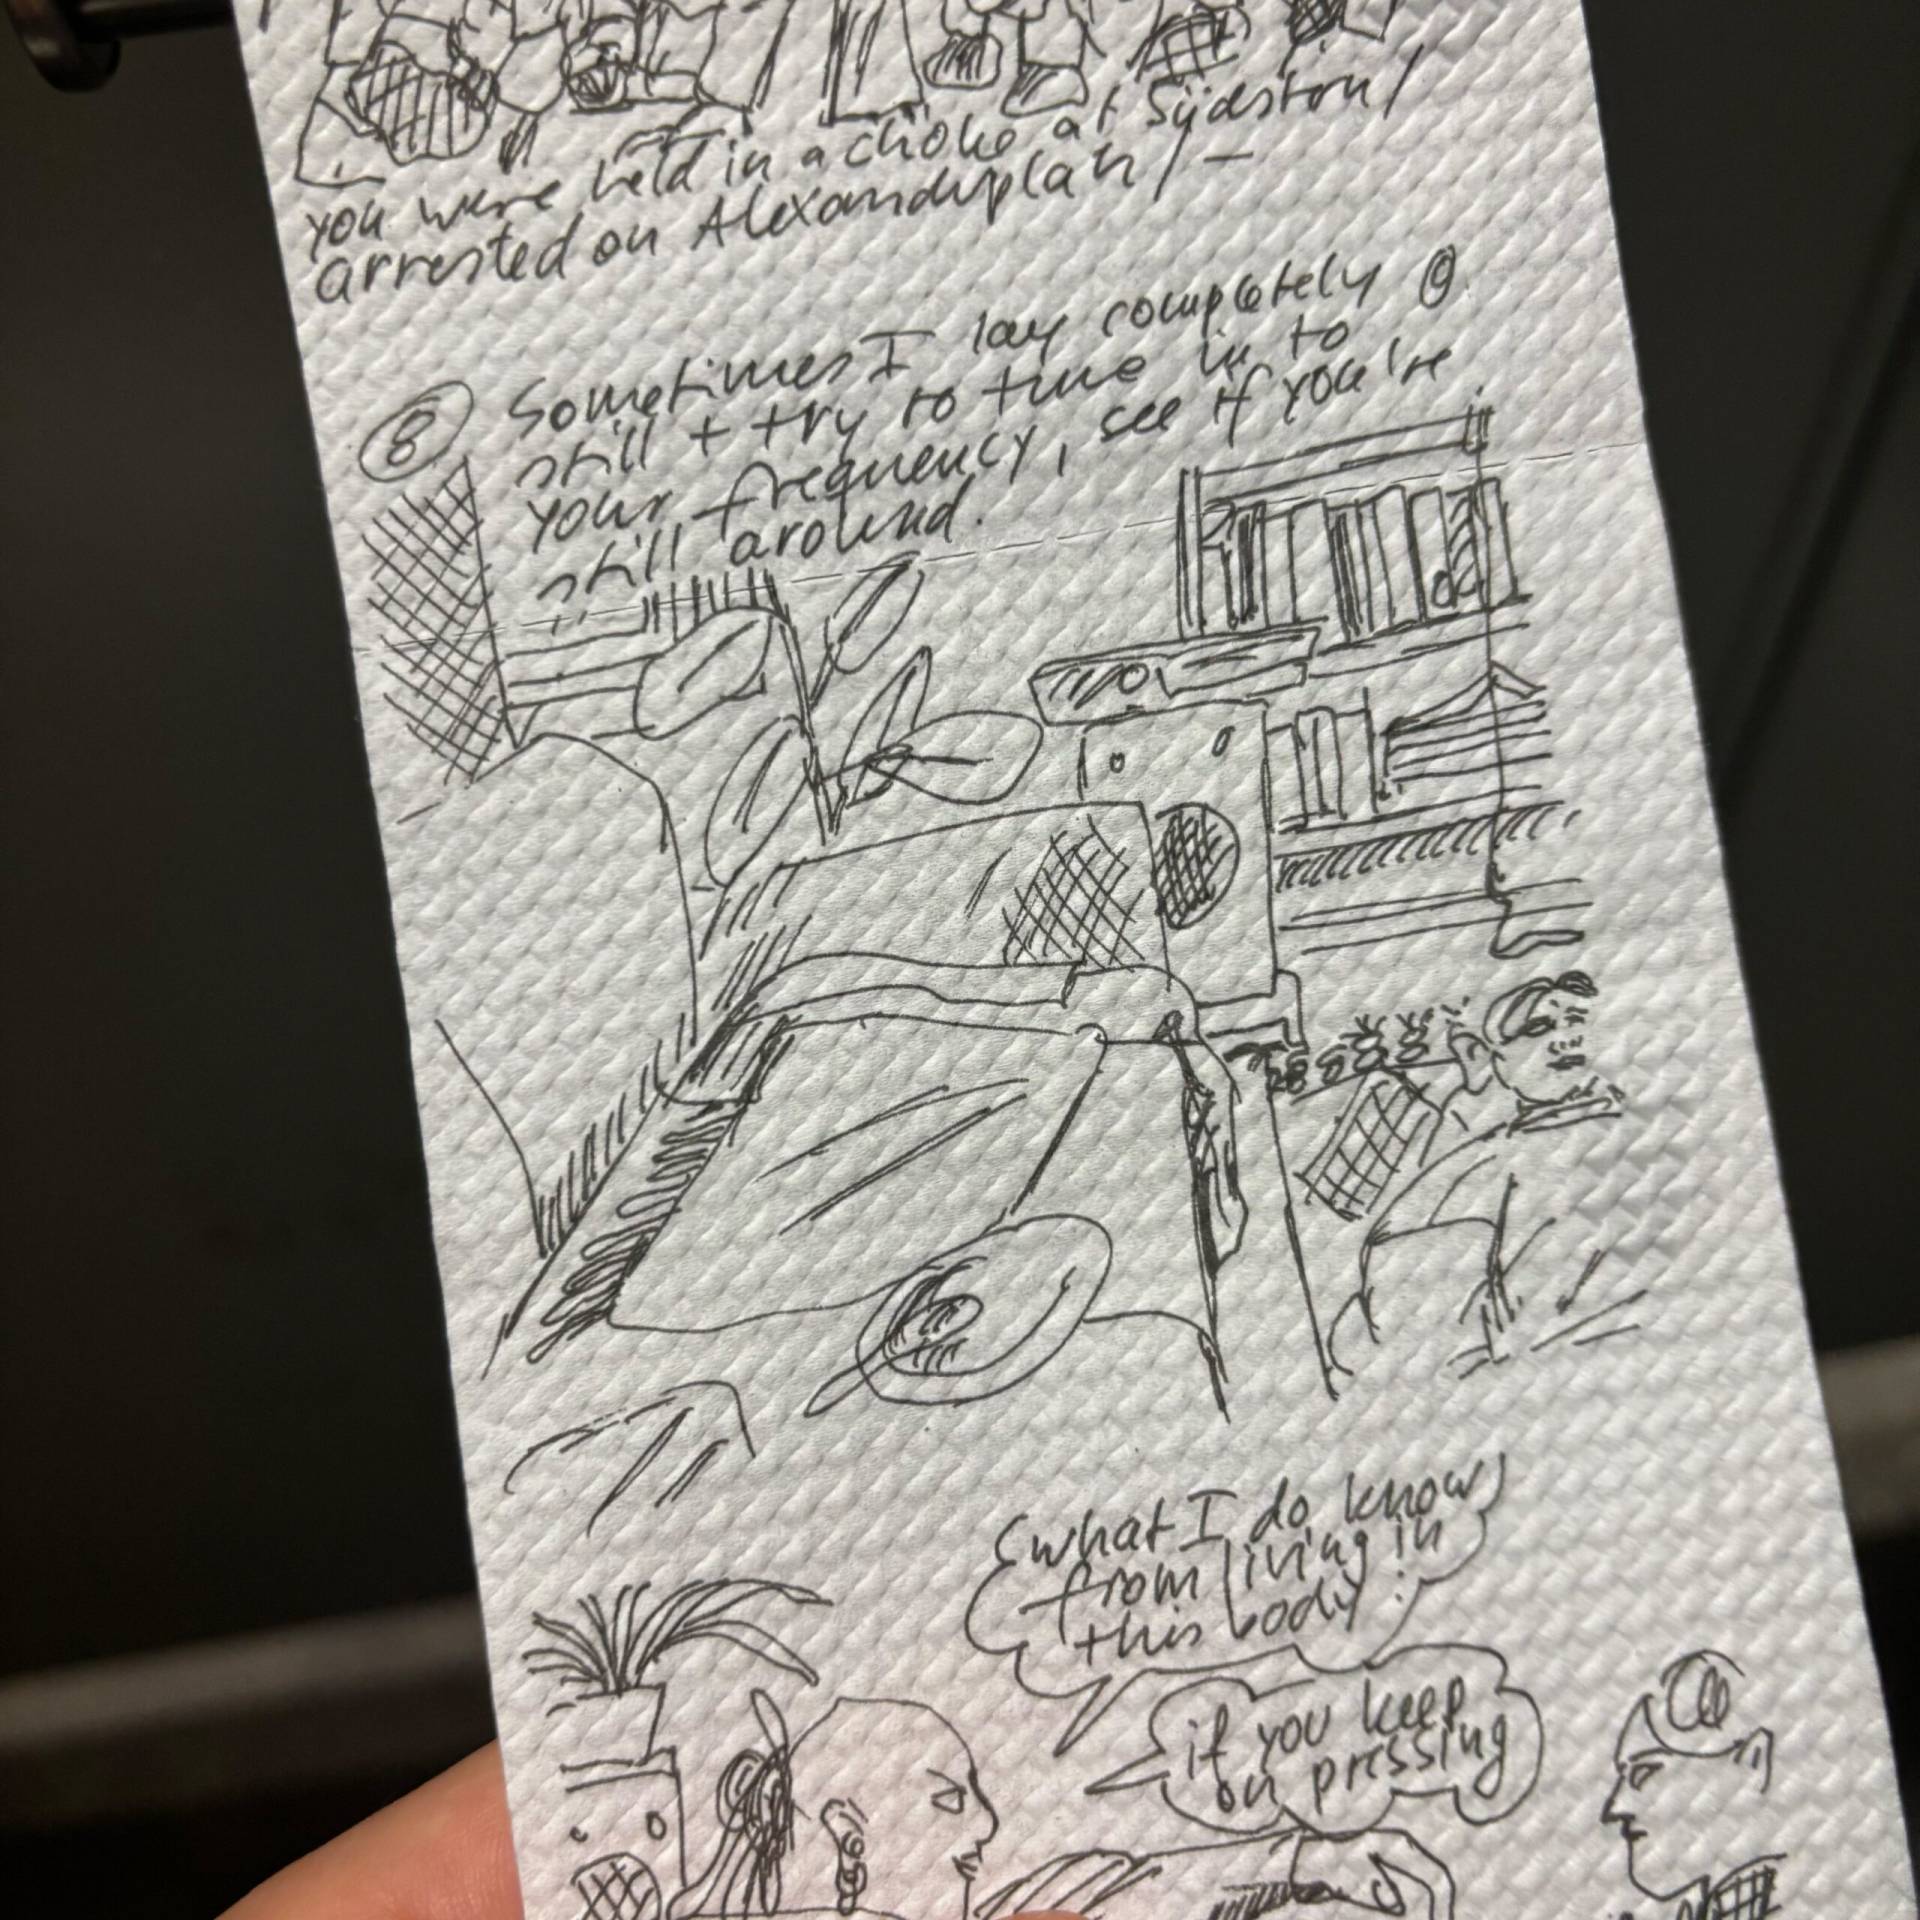 you were held in a choke at Südstern/
arrested on Alexanderplatz/ —
8 Sometimes I lay completely
still + try to tune in to
your frequency, see if you're
still around.
what I do know
from living in
this body:
if you keep
on pressing